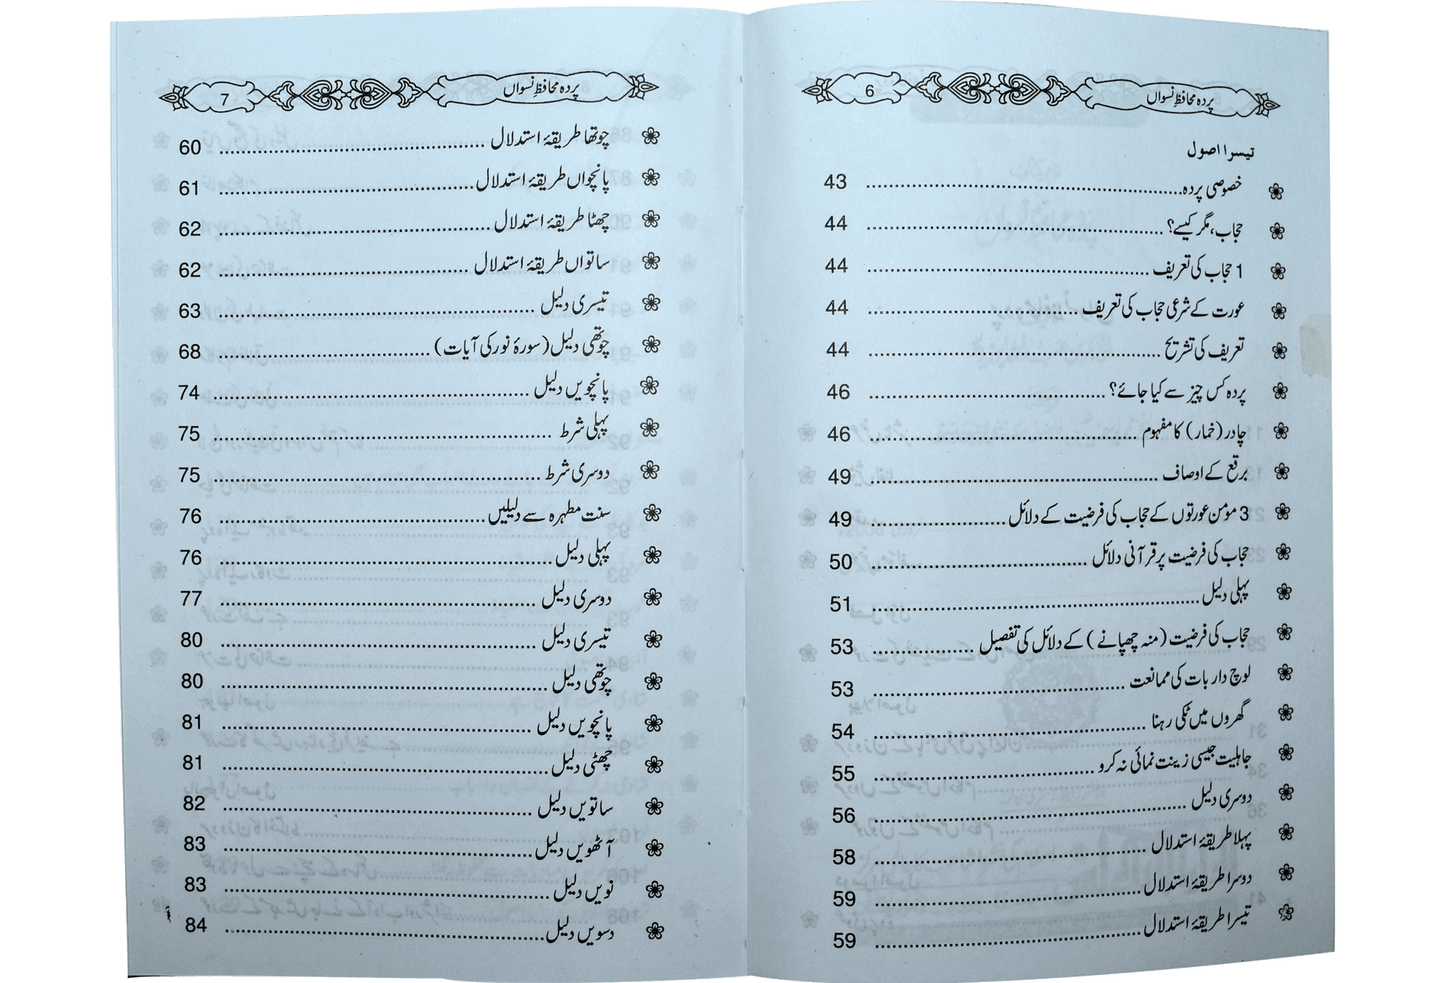 پردہ محافظِ نسواں 6
تیسرا اصول
خصوصی پردہ 43
حجاب، مگر کیسے؟ 44
1 حجاب کی تعریف 44
عورت کے شرعی حجاب کی تعریف 44
تعریف کی تشریح 44
پردہ کس چیز سے کیا جائے؟ 46
چادر (خمار) کا مفہوم 46
برقع کے اوصاف 49
3 مومن عورتوں کے حجاب کی فرضیت کے دلائل 49
حجاب کی فرضیت پر قرآنی دلائل 50
پہلی دلیل 51
حجاب کی فرضیت (منہ چھپانے) کے دلائل کی تفصیل 53
لوچ دار بات کی ممانعت 53
گھروں میں ٹکی رہنا 54
جاہلیت جیسی زینت نمائی نہ کرو 55
دوسری دلیل 56
پہلا طریقۂ استدلال 58
دوسرا طریقۂ استدلال 59
تیسرا طریقۂ استدلال 59
پردہ محافظِ نسواں 7
چوتھا طریقۂ استدلال 60
پانچواں طریقۂ استدلال 61
چھٹا طریقۂ استدلال 62
ساتواں طریقۂ استدلال 62
تیسری دلیل 63
چوتھی دلیل (سورۂ نور کی آیات) 68
پانچویں دلیل 74
پہلی شرط 75
دوسری شرط 75
سنت مطہرہ سے دلیلیں 76
پہلی دلیل 76
دوسری دلیل 77
تیسری دلیل 80
چوتھی دلیل 80
پانچویں دلیل 81
چھٹی دلیل 81
ساتویں دلیل 82
آٹھویں دلیل 83
نویں دلیل 83
دسویں دلیل 84